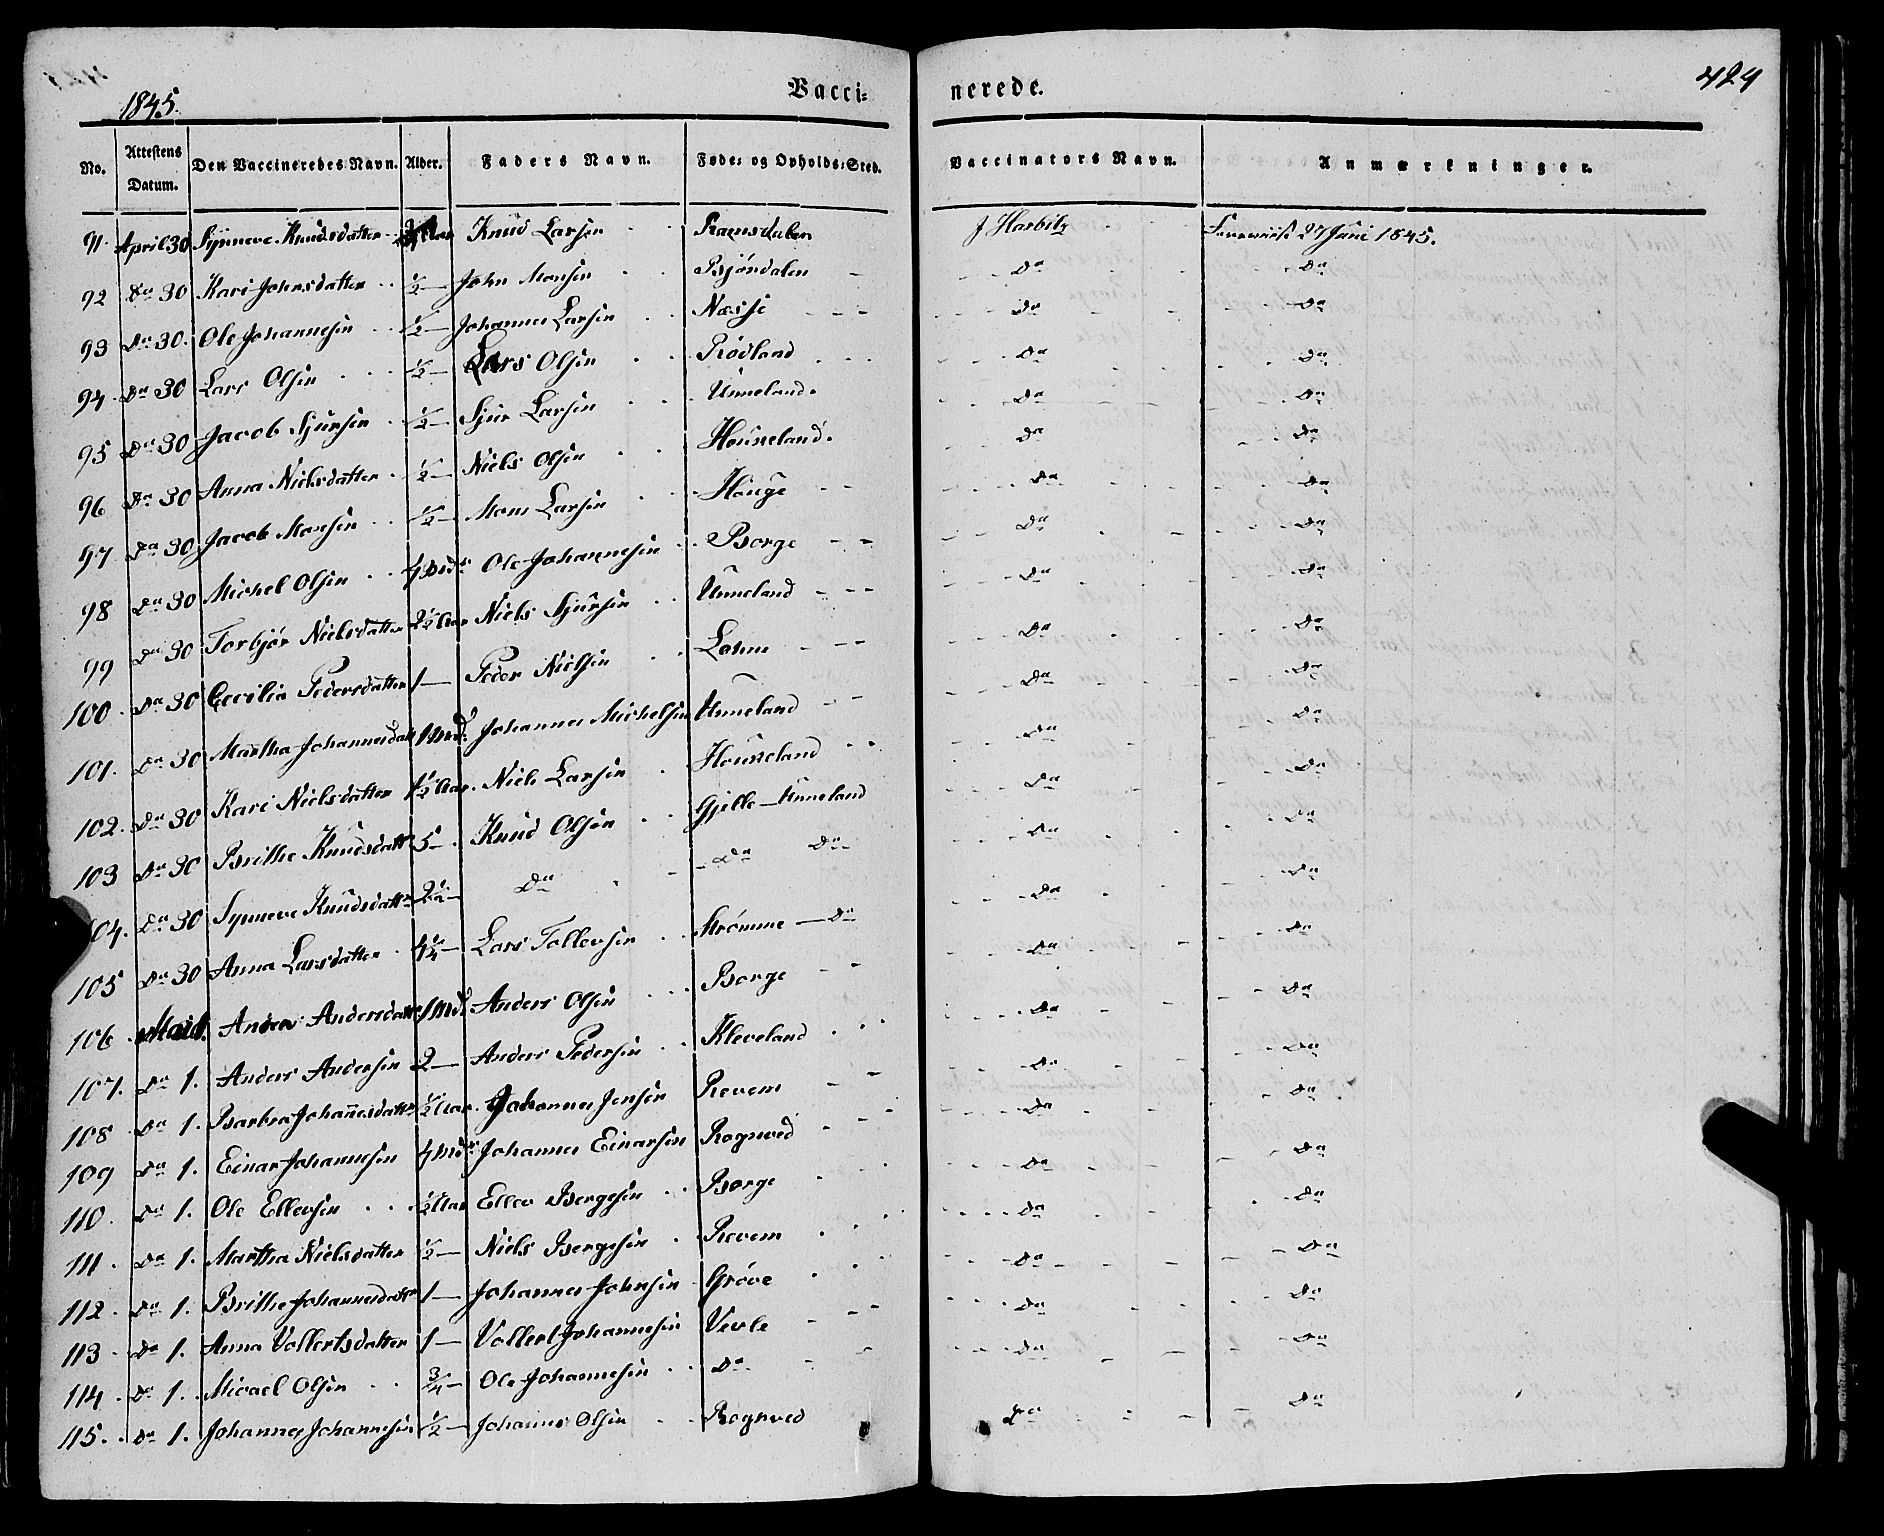 1845.
Vacci= nerede. 424
No. Attestens Datum. Den Vaccineredes Navn. Alder. Faders Navn. Føde= og Opholds=Sted. Vaccinators Navn. Anmærkninger.
91. April 30 Synneve Knudsdatter Knud Larsen J Harbitz 27 Juni 1845.
92 Do 30 Kari Johnsdatter 1/2 — John Monsen Bjørdalen Do Do
93 Do 30. Ole Johannesen 1/2 — Johannes Larsen Næsse Do Do
94. Do 30 Lars Olsen 1/2 — Lars Olsen Rødland Do Do
95 Do 30 Jacob Sjursen 1/2 — Sjur Larsen Unneland. Do Do
96 Do 30 Anna Nielsdatter 1/2 — Niels Olsen Houneland. Do Do
97 Do 30 Jacob Monsen 1/2 — Mons Larsen Houge Do Do
98 Do 30 Michel Olsen Ole Johannesen Borge Do Do
99 Do 30 Torbjør Nielsdatter 2 1/2 Aar Niels Sjursen Unneland Do Do
100. Do 30 Cecilia Pedersdatter 1 — Peder Nielsen Do Do
101. Do 30 Martha Johannesdatt Johannes Michelsen Unneland Do Do
102. Do 30 Kari Nielsdatter 1 1/2 Aar. Niels Larsen Houneland Do Do
103 Do 30 Brithe Knudsdatt 5 — Knud Olsen Gjelle — Unneland Do Do
104. Do 30 Synneve Knudsdattr 2 1/2 — Do Do Do Do Do
105 Do 30 Anna Larsdatter Lars Tollevsen Strømme — Do Do Do
106 Mai 1. Andersdattr Anders Olsen Borge Do Do
107. Do 1. Anders Andersen 2 — Anders Pedersen Kleveland Do Do
108 Do 1. Barbra Johañesdattr 1/2 Aar. Johannes Jensen Revem Do Do
109 Do 1. Einar Johannesen Johannes Einarsen Rognved Do Do
110. Do 1. Ole Ellevsen 1/2 Aar Ellev Børgesen Borge Do Do
111. Do 1. Martha Nielsdatter 1/2 — Niels Børgesen Revem Do Do
112. Do 1. Brithe Johannesdattr 1 — Johannes Johnsen Grøve Do Do
113. Do 1. Anna Vollertsdatter 1 — Vollert Johannesen Vevle Do Do
114. Do 1. Micael Olsen 3/4 — Ole Johannesen Do Do Do
115. Do 1. Johannes Johannesen 1/2 — Johannes Olsen Rognved Do